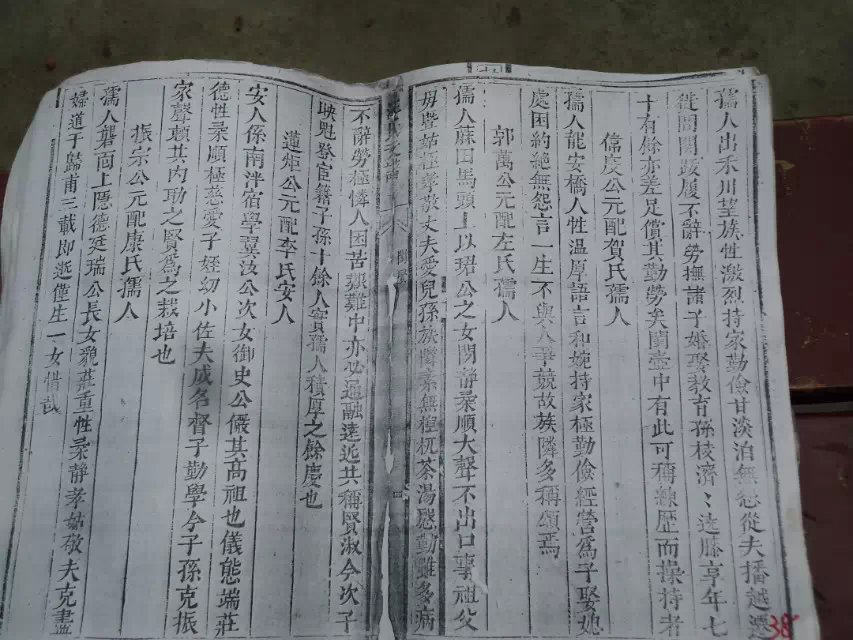 孺人出禾川望族性激烈持家勤儉甘淡泊無怨從夫播越
從間關跋履不辭勞撫諸子婚娶教育孫枝濟〻遶膝享年七
十有餘亦差足償其勤勞矣閫壼中有此可稱練歷而操持者
偉慶公元配賀氏孺人
孺人龍安橋人性溫厚語言和婉持家極勤儉經營爲子娶媳
處困約絶無怨言一生不與人爭競故族隣多稱頌焉
郭萬公元配左氏孺人
孺人蔴田馬頭上以珺公之女閑靜柔順大聲不出口事祖父
母曁姑極孝敬丈夫愛兒孫族隣素無梗杌茶湯慇勤雖多病
不辭勞極憐人困苦艱難中亦必通融遠近共稱賢淑今次子
映魁登宦籍子孫十餘人實孺人積厚之餘慶也
蓮炬公元配李氏安人
安人係南泮宿學翼汝公次女御史公儼其高祖也儀態端莊
德性柔順極慈愛子姪幼小佐夫成名督子勤學今子孫克振
家聲頼其內助之賢爲之栽培也
振宗公元配康氏孺人
孺人礱而上隱德廷瑞公長女貌莊重性柔靜孝姑敬夫克盡
婦道于歸甫三載即逝僅生一女惜哉
38